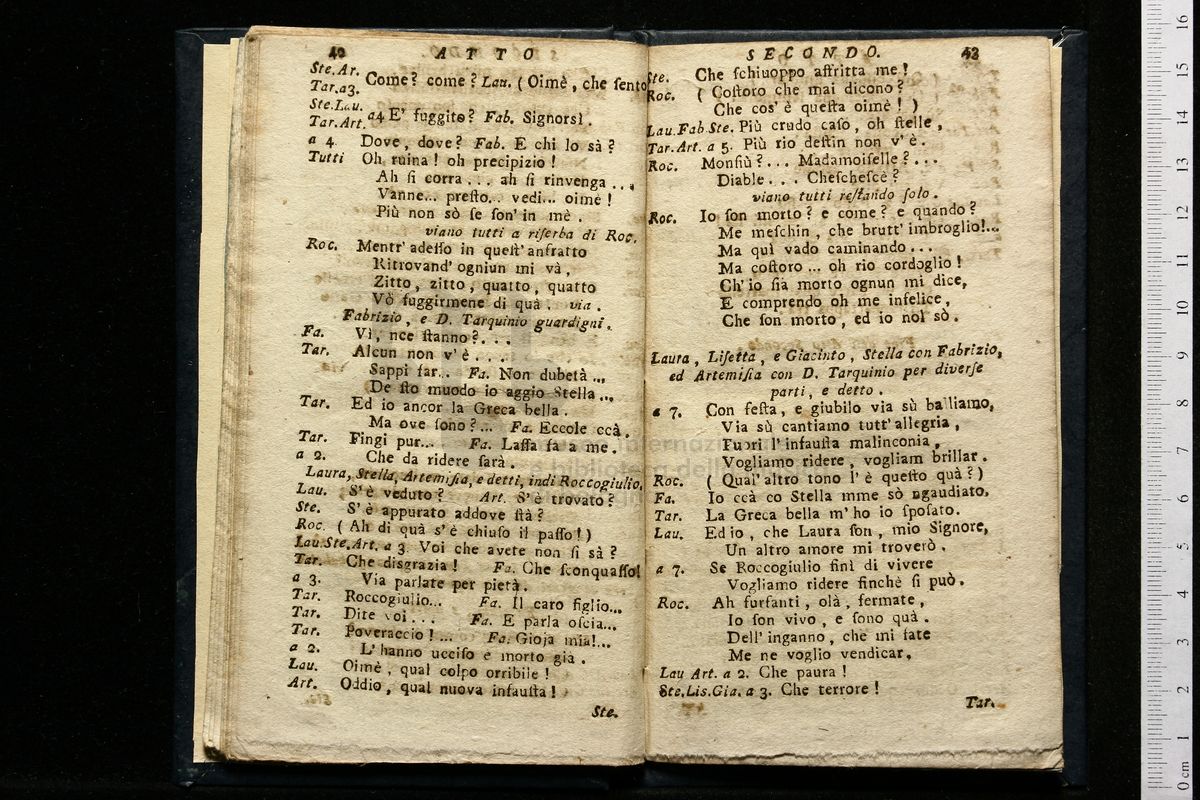 42 ATTO
Ste. Ar.
Tar. a3. Come? come? Lau. (Oimè, che ſento
Ste. Lau.
Tar. Art. a4 E' fuggito? Fab. Signorsì.
a 4. Dove, dove? Fab. E chi lo sà?
Tutti Oh ruina! oh precipizio!
Ah ſi corra... ah ſi rinvenga...
Vanne... preſto.. vedi... oimè!
Più non sò ſe ſon' in mè.
viano tutti a riſerba di Roc.
Roc. Mentr' adeſſo in queſt' anfratto
Ritrovand' ogniun mi và,
Zitto, zitto, quatto, quatto
Vò fuggirmene di quà. via.
Fabrizio, e D. Tarquinio guardigni.
Fa. Vì, nce ſtanno?...
Tar. Alcun non v' è...
Sappi far... Fa. Non dubetà...
De ſto muodo io aggio Stella...
Tar. Ed io ancor la Greca bella.
Ma ove ſono?... Fa. Eccole ccà.
Tar. Fingi pur... Fa. Laſſa fa a me.
a 2. Che da ridere ſarà.
Laura, Stella, Artemiſia, e detti, indi Roccogiulio.
Lau. S' è veduto? Art. S' è trovato?
Ste. S' è appurato addove ſtà?
Roc. (Ah di quà s' è chiuſo il paſſo!)
Lau. Ste. Art. a 3. Voi che avete non ſi sà?
Tar. Che disgrazia! Fa. Che ſconquaſſo!
a 3. Via parlate per pietà.
Tar. Roccogiulio... Fa. Il caro figlio...
Tar. Dite voi... Fa. E parla oſcia...
Tar. Poveraccio!... Fa. Gioja mia!...
a 2. L' hanno ucciſo e morto già.
Lau. Oimè, qual colpo orribile!
Art. Oddio, qual nuova infauſta!
Ste.
SECONDO. 43
Ste. Che ſchiuoppo affritta me!
Roc. (Coſtoro che mai dicono?
Che cos' è queſta oimè!)
Lau. Fab Ste. Più crudo caſo, oh ſtelle,
Tar. Art. a 5. Più rio deſtin non v' è.
Roc. Monſiù?... Madamoiſelle?...
Diable... Cheſcheſcè?
viano tutti reſtando ſolo.
Roc. Io ſon morto? e come? e quando?
Me meſchin, che brutt' imbroglio!...
Ma quì vado caminando...
Ma coſtoro... oh rio cordoglio!
Ch' io ſia morto ognun mi dice,
E comprendo oh me infelice,
Che ſon morto, ed io nol sò.
Laura, Liſetta, e Giacinto, Stella con Fabrizio,
ed Artemiſia con D. Tarquinio per diverſe
parti, e detto.
a 7. Con feſta, e giubilo via sù balliamo,
Via sù cantiamo tutt' allegria,
Fuori l' infauſta malinconia,
Vogliamo ridere, vogliam brillar.
Roc. (Qual' altro tono l' è queſto quà?)
Fa. Io ccà co Stella mme sò ngaudiato.
Tar. La Greca bella m' ho io ſpoſato.
Lau. Ed io, che Laura ſon, mio Signore,
Un altro amore mi troverò.
a 7. Se Roccogiulio finì di vivere
Vogliamo ridere finchè ſi può.
Roc. Ah furfanti, olà, fermate,
Io ſon vivo, e ſono quà.
Dell' inganno, che mi fate
Me ne voglio vendicar.
Lau Art. a 2. Che paura!
Ste. Lis. Gia. a 3. Che terrore!
Tar.